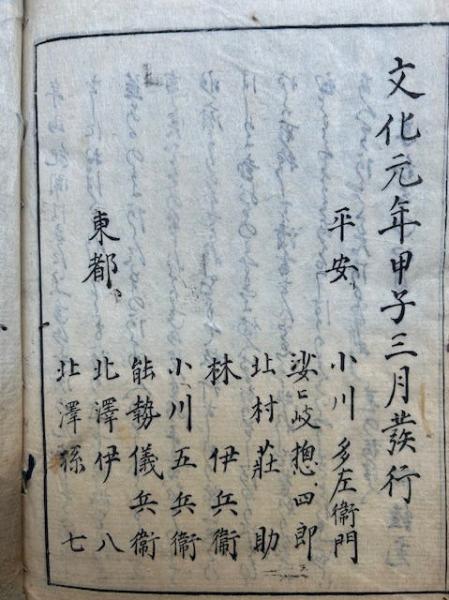 文化元年甲子三月發行
平安 小川多左衞門
娑〻岐摠四郎
北村莊助
林伊兵衞
小川五兵衞
能勢儀兵衞
東都 北澤伊八
北澤孫七